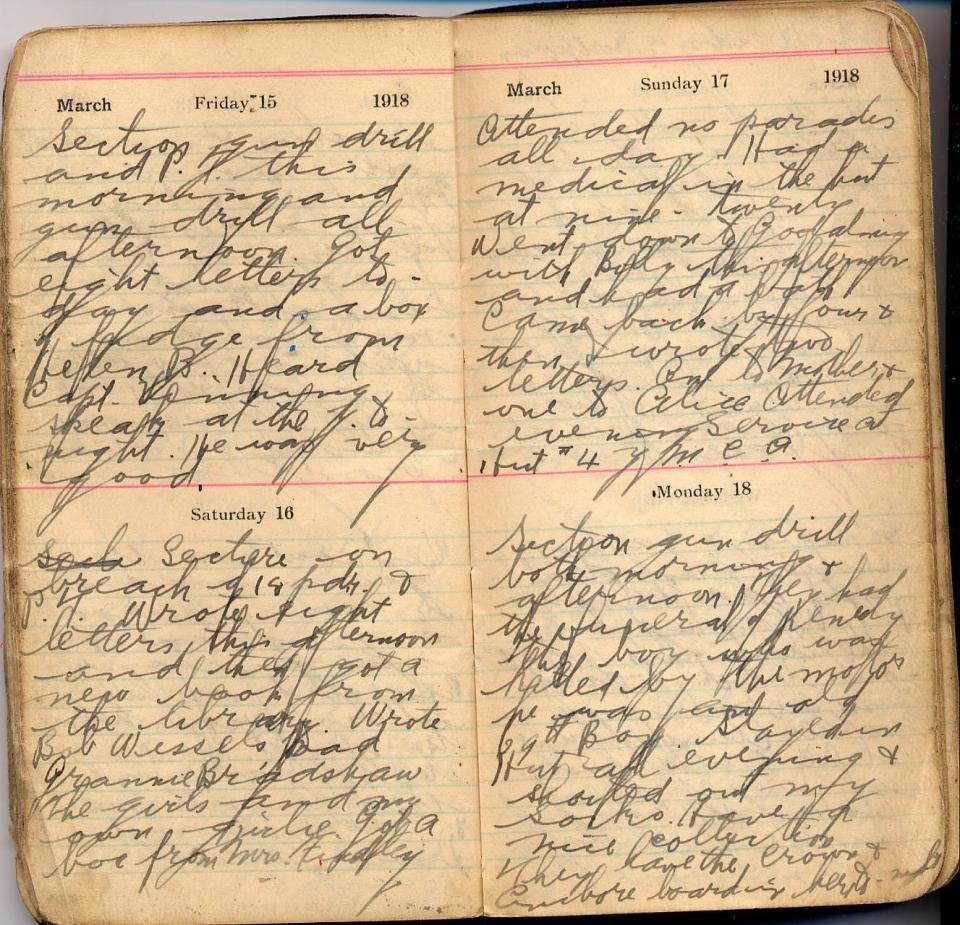 March Friday 15 1918
Section gun drill
and P. T. this
morning and
gun drill all
afternoon. Got
eight letters to-
day and a box
of fudge from
Helen B. Heard
Capt.
speak at the Y. to-
night. He was very
good.
Saturday 16
Lecture on
breach of 18 pdr. &
P. T. Wrote eight
letters this afternoon
and then got a
new book from
the library Wrote
Bob Wessels Dad
Grannie Bradshaw
The girls and my
own girlie. Got a
box from Mrs.
March Sunday 17 1918
Attended no parades
all day. Had a
medical in the hut
at nine-twenty
Went down to Godalming
with Billy this afternoon
and had a
Came back by four &
then I wrote two
letters. One to Mother &
one to Alice Attended
evening Service at
Hut #4 Y M C A.
Monday 18
Section gun drill
both morning &
afternoon. They had
the funeral of
the boy who was
killed by the motor
he was an old
69th Boy. Stayed in
Hut all evening &
sorted out my
socks. Have got a
nice collection
They have the Crown &
Anchor boarding